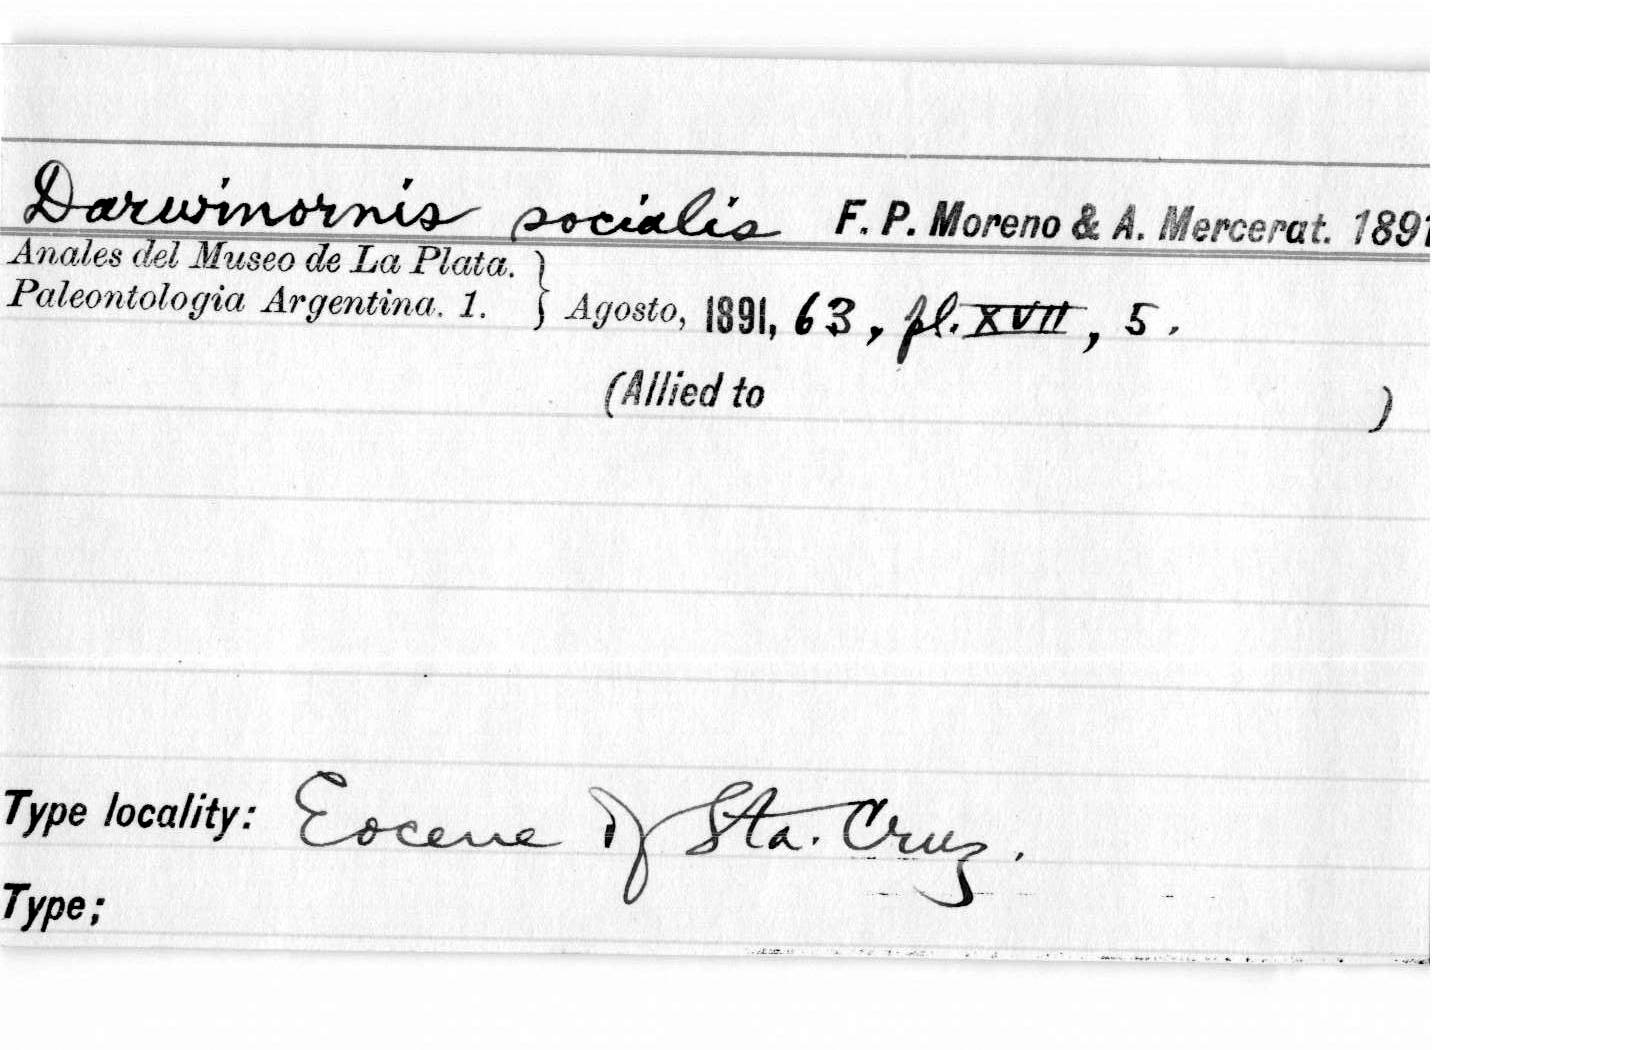 Darwinornis socialis F. P. Moreno & A. Mercerat. 1891
Anales del Museo de La Plata.
Paleontologia Argentina. 1. } Agosto, 1891, 63, pl. XVII, 5.
(Allied to )
Type locality: Eocene of Sta. Cruz.
Type;